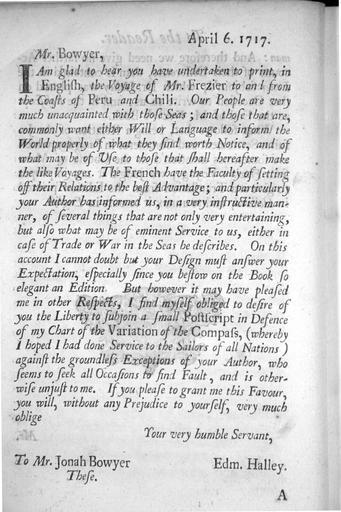 April 6. 1717.
Mr. Bowyer,
I Am glad to hear you have undertaken to print, in
Engliſh, the Voyage of Mr. Frezier to and from
the Coaſts of Peru and Chili. Our People are very
much unacquainted with thoſe Seas; and thoſe that are,
commonly want either Will or Language to inform the
World properly of what they find worth Notice, and of
what may be of Uſe to thoſe that ſhall hereafter make
the like Voyages. The French have the Faculty of ſetting
off their Relations to the beſt Advantage; and particularly
your Author has informed us, in a very inſtructive man-
ner, of ſeveral things that are not only very entertaining,
but alſo what may be of eminent Service to us, either in
caſe of Trade or War in the Seas he deſcribes. On this
account I cannot doubt but your Deſign muſt anſwer your
Expectation, eſpecially ſince you beſtow on the Book ſo
elegant an Edition. But however it may have pleaſed
me in other Reſpects, I find myſelf obliged to deſire of
you the Liberty to ſubjoin a ſmall Poſtſcript in Defence
of my Chart of the Variation of the Compaſs, (whereby
I hoped I had done Service to the Sailors of all Nations)
againſt the groundleſs Exceptions of your Author, who
ſeems to ſeek all Occaſions to find Fault, and is other-
wiſe unjuſt to me. If you pleaſe to grant me this Favour,
you will, without any Prejudice to yourſelf, very much
oblige
Your very humble Servant,
To Mr. Jonah Bowyer Edm. Halley.
Theſe.
A